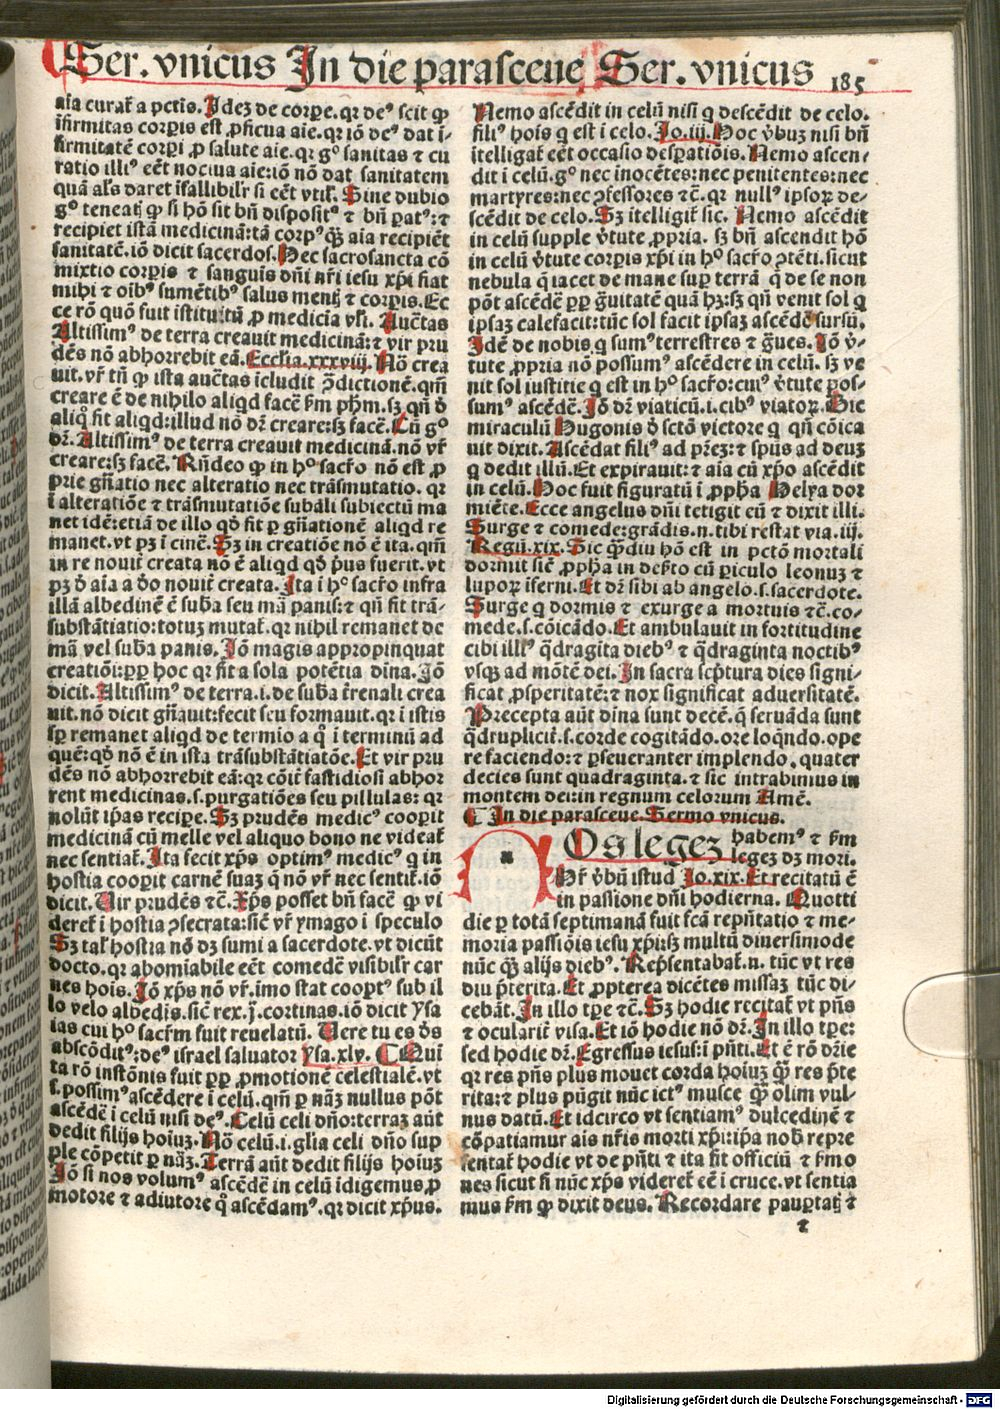 Ser. vnicus In die parasceue Ser. vnicus 185
aia curat̃ a pctĩs. Idez de corꝑe. qꝛ deꝰ scit ꝙ
ĩfirmitas corpĩs est ꝓficua aĩe. qꝛ iõ deꝰ dat ĩ-
firmitatẽ corpi ꝓ salute aĩe. qꝛ gº sanitas ⁊ cu
ratio illiꝰ eẽt nociua aĩe: iõ nõ dat sanitatem
quã al's daret ĩfallibilr̃ si eẽt vtił. Sine dubio
gº teneatꝭ ꝙ si hõ sit bñ dispositꝰ ⁊ bñ ꝑatꝰ: ⁊
recipiet istã medicinã: tã corpꝰ ꝙ̃ aĩa recipiẽt
sanitatẽ. iõ dicit sacerdos. Hec sacrosancta cõ
mixtio corpĩs ⁊ sanguis dñi nr̃i iesu xp̃i fiat
mihi ⁊ oĩbꝰ sumẽtibꝰ salus mentꝭ ⁊ corpĩs. Ec
ce rõ quõ fuit istitutũ ꝓ medicĩa vr̃i. Auc̃tas
Altissimꝰ de terra creauit medicinã: ⁊ vir pru
dẽs nõ abhorrebit eã. Eccl'ia. xxxviij. Nõ crea
uit. vr̃ tñ ꝙ ista auc̃tas ĩcludit ꝯ̃dictionẽ. qm̃
creare ẽ de nihilo aliqd facẽ fm̃ phm̃. sꝫ qñ ð
aliq̃ fit aliqd: illud nõ dr̃ creare: sꝫ facẽ. Cũ gº
dr̃. Altissimꝰ de terra creauit medicinã. nõ vr̃
creare: sꝫ facẽ. Rñdeo ꝙ in hº sacr̃o nõ est ꝓ
prie gñatio nec alteratio nec trãsmutatio. qꝛ
ĩ alteratiõe ⁊ trãsmutatiõe subãli subiectũ ma
net idẽ: etiã de illo qð fit ꝑ gñationẽ aliqd re
manet. vt pꝫ ĩ cinẽ. Sꝫ in creatiõe nõ ẽ ita. qm̃
in re nouit̃ creata nõ ẽ aliqd qð p̃us fuerit. vt
pꝫ ð aĩa a ðo nouit̃ creata. Ita ĩ hº sacr̃o infra
illã albedinẽ ẽ suba seu mã panis: ⁊ qñ fit trã-
substãtiatio: totuꝫ mutat̃. qꝛ nihil remanet de
mã vel suba panis. Iõ magis appropinquat
creatiõi: ꝓp hoc qꝛ fit a sola potẽtia diña. Iõ
dicit. Altissimꝰ de terra. i. de suba t̃renali crea
uit. nõ dicit gñauit: fecit seu formauit. qꝛ ĩ istis
sp̃ remanet aliqd de termio a q̃ ĩ terminũ ad
quẽ: qð nõ ẽ in ista trãsubstãtiatõe. Et vir pru
dẽs nõ abhorrebit eã: qꝛ cõit̃ fastidiosi abhor
rent medicinas. s. purgatiões seu pillulas: qꝛ
nolũt ip̃as recipe. Sꝫ prudẽs medicꝰ cooꝑit
medicinã cũ melle vel aliquo bono ne videat̃
nec sentiat̃. Ita fecit xp̃s optimꝰ medicꝰ q in
hostia cooꝑit carnẽ suaꝫ q̃ nõ vr̃ nec sentit̃. iõ
dicit. Vir prudẽs ⁊c̃. Xp̃s posset bñ facẽ ꝙ vi
deret̃ ĩ hostia ꝯsecrata: sic̃ vr̃ ymago ĩ speculo
Sꝫ tał hostia nõ dꝫ sumi a sacerdote. vt dicũt
docto. qꝛ abomiabile eẽt comedẽ visibilr̃ car
nes hoĩs. Iõ xp̃s nõ vr̃. imo stat cooptꝰ sub il
lo velo albedĩs. sic̃ rex. ĩ. cortinas. iõ dicit ysa
ias cui hº sacr̃m fuit reuelatũ. Uere tu es ðs
abscõditꝰ: deꝰ israel saluator ysa. xlv. Qui
ta rõ instõnis fuit ꝓp ꝓmotionẽ celestialẽ. vt
s. possimꝰ ascẽdere ĩ celũ. qm̃ ꝑ nãꝫ nullus põt
ascẽdẽ ĩ celũ nisi deꝰ. Celũ celi dño: terraꝫ aũt
dedit filijs hoĩuꝫ. Nõ celũ. i. gl'ia celi dño sup
ple cõpetit ꝑ nãꝫ. Terrã aũt dedit filijs hoĩuꝫ
Iõ si nos volumꝰ ascẽdẽ in celũ ĩdigemus ꝓ
motore ⁊ adiutore q̃ ascẽdamꝰ. qꝛ dicit xp̃us.
Nemo ascẽdit in celũ nisi q descẽdit de celo.
filiꝰ hoĩs q est ĩ celo. Jo. iij. Hoc v̉buꝫ nisi bñ
ĩtelligat̃ eẽt occasio desꝑatiõis. Nemo ascen-
dit ĩ celũ. gº nec inocẽtes: nec penitentes: nec
martyres: nec ꝯfessores ⁊c̃. qꝛ nullꝰ ipsoꝝ de-
scẽdit de celo. Sꝫ ĩtelligit̃ sic. Nemo ascẽdit
in celũ supple v̉tute ꝓpria. sꝫ bñ ascendit hõ
in celũ v̉tute corpis xp̃i in hº sacr̃o ꝯtẽti. sicut
nebula q̃ iacet de mane suꝑ terrã q̃ de se non
põt ascẽdẽ ꝓp g̃uitatẽ quã hꝫ: sꝫ qñ venit sol q
ipsaꝫ calefacit: tũc sol facit ipsaꝫ ascẽdẽ sursũ.
Idẽ de nobis q sumꝰ terrestres ⁊ g̃ues. Iõ v̉-
tute ꝓpria nõ possumꝰ ascẽdere in celũ. sꝫ ve
nit sol iustitie q est in hº sacr̃o: cuiꝰ v̉tute pos-
sumꝰ ascẽdẽ. Iõ dr̃ viaticũ. i. cibꝰ viatoꝝ. Sic
miraculũ Hugonis ð sc̃to victore q qñ cõica
uit dixit. Ascẽdat filiꝰ ad pr̃eꝫ: ⁊ sp̃us ad deuꝫ
q dedit illũ. Et expirauit: ⁊ aĩa cũ xp̃o ascẽdit
in celũ. Hoc fuit figuratũ ĩ ꝓpha Helya dor
miẽte. Ecce angelus dñi tetigit eũ ⁊ dixit illi.
Surge ⁊ comede: grãdis. n. tibi restat via. iij.
Regũ. xix. Sic ꝙ̃diu hõ est in pctõ mortali
dormit sic̃ ꝓpha in deserto cũ ꝑiculo leonuꝫ ⁊
lupoꝝ ĩferni. Et dr̃ sibi ab angelo. s. sacerdote.
Surge q dormis ⁊ exurge a mortuis ⁊c̃. co-
mede. s. cõicãdo. Et ambulauit in fortitudine
cibi illiꝰ q̃dragita diebꝰ ⁊ q̃draginta noctibꝰ
vsqꝫ ad mõtẽ dei. In sacra scp̃tura dies signi-
ficat ꝓsperitatẽ: ⁊ nox significat aduersitatẽ.
Precepta aũt diña sunt decẽ. q̃ seruãda sunt
q̃drupliciť. s. corde cogitãdo. ore loqñdo. ope
re faciendo: ⁊ ꝑseueranter implendo. quater
decies sunt quadraginta. ⁊ sic intrabimus in
montem dei: in regnum celorum Amẽ.
In die parasceue. Sermo vnicus.
Nos legeꝫ habemꝰ ⁊ fm̃
legeꝫ dꝫ mori.
Hr̃ v̉bũ istud Jo. xix. Et recitatũ ẽ
in passione dñi hodierna. Quotti
die ꝑ totã septimanã fuit fc̃a rep̃ñtatio ⁊ me-
moria passiõis iesu xp̃i: sꝫ multũ diuersimode
nũc ꝙ̃ alijs diebꝰ. Rep̃sentabat̃. n. tũc vt res
diu p̃terita. Et ꝓpterea dicẽtes missaꝫ tũc di-
cebãt. In illo tp̃e ⁊c̃. Sꝫ hodie recitat̃ vt p̃ñs
⁊ oculariť visa. Et iõ hodie nõ dr̃. In illo tp̃e:
sed hodie dr̃. Egressus iesus: ĩ p̃ñti. Et ẽ rõ dr̃ie
qꝛ res p̃ñs plus mouet corda hoĩuꝫ ꝙ̃ res p̃te
rita: ⁊ plus pũgit nũc ictꝰ musce ꝙ̃ olim vul-
nus datũ. Et idcirco vt sentiamꝰ dulcedinẽ ⁊
cõpatiamur aĩs nr̃is morti xp̃i: ip̃a nob̃ repre
sentat̃ hodie vt de p̃ñti ⁊ ita fit officiũ ⁊ fm̃o
nes sicut si nũc xp̃s videret̃ eẽ ĩ cruce. vt sentia
mus fm̃ ꝙ dixit deus. Recordare pauꝑtatꝭ ⁊
⁊
Digitalisierung gefördert durch die Deutsche Forschungsgemeinschaft - DFG